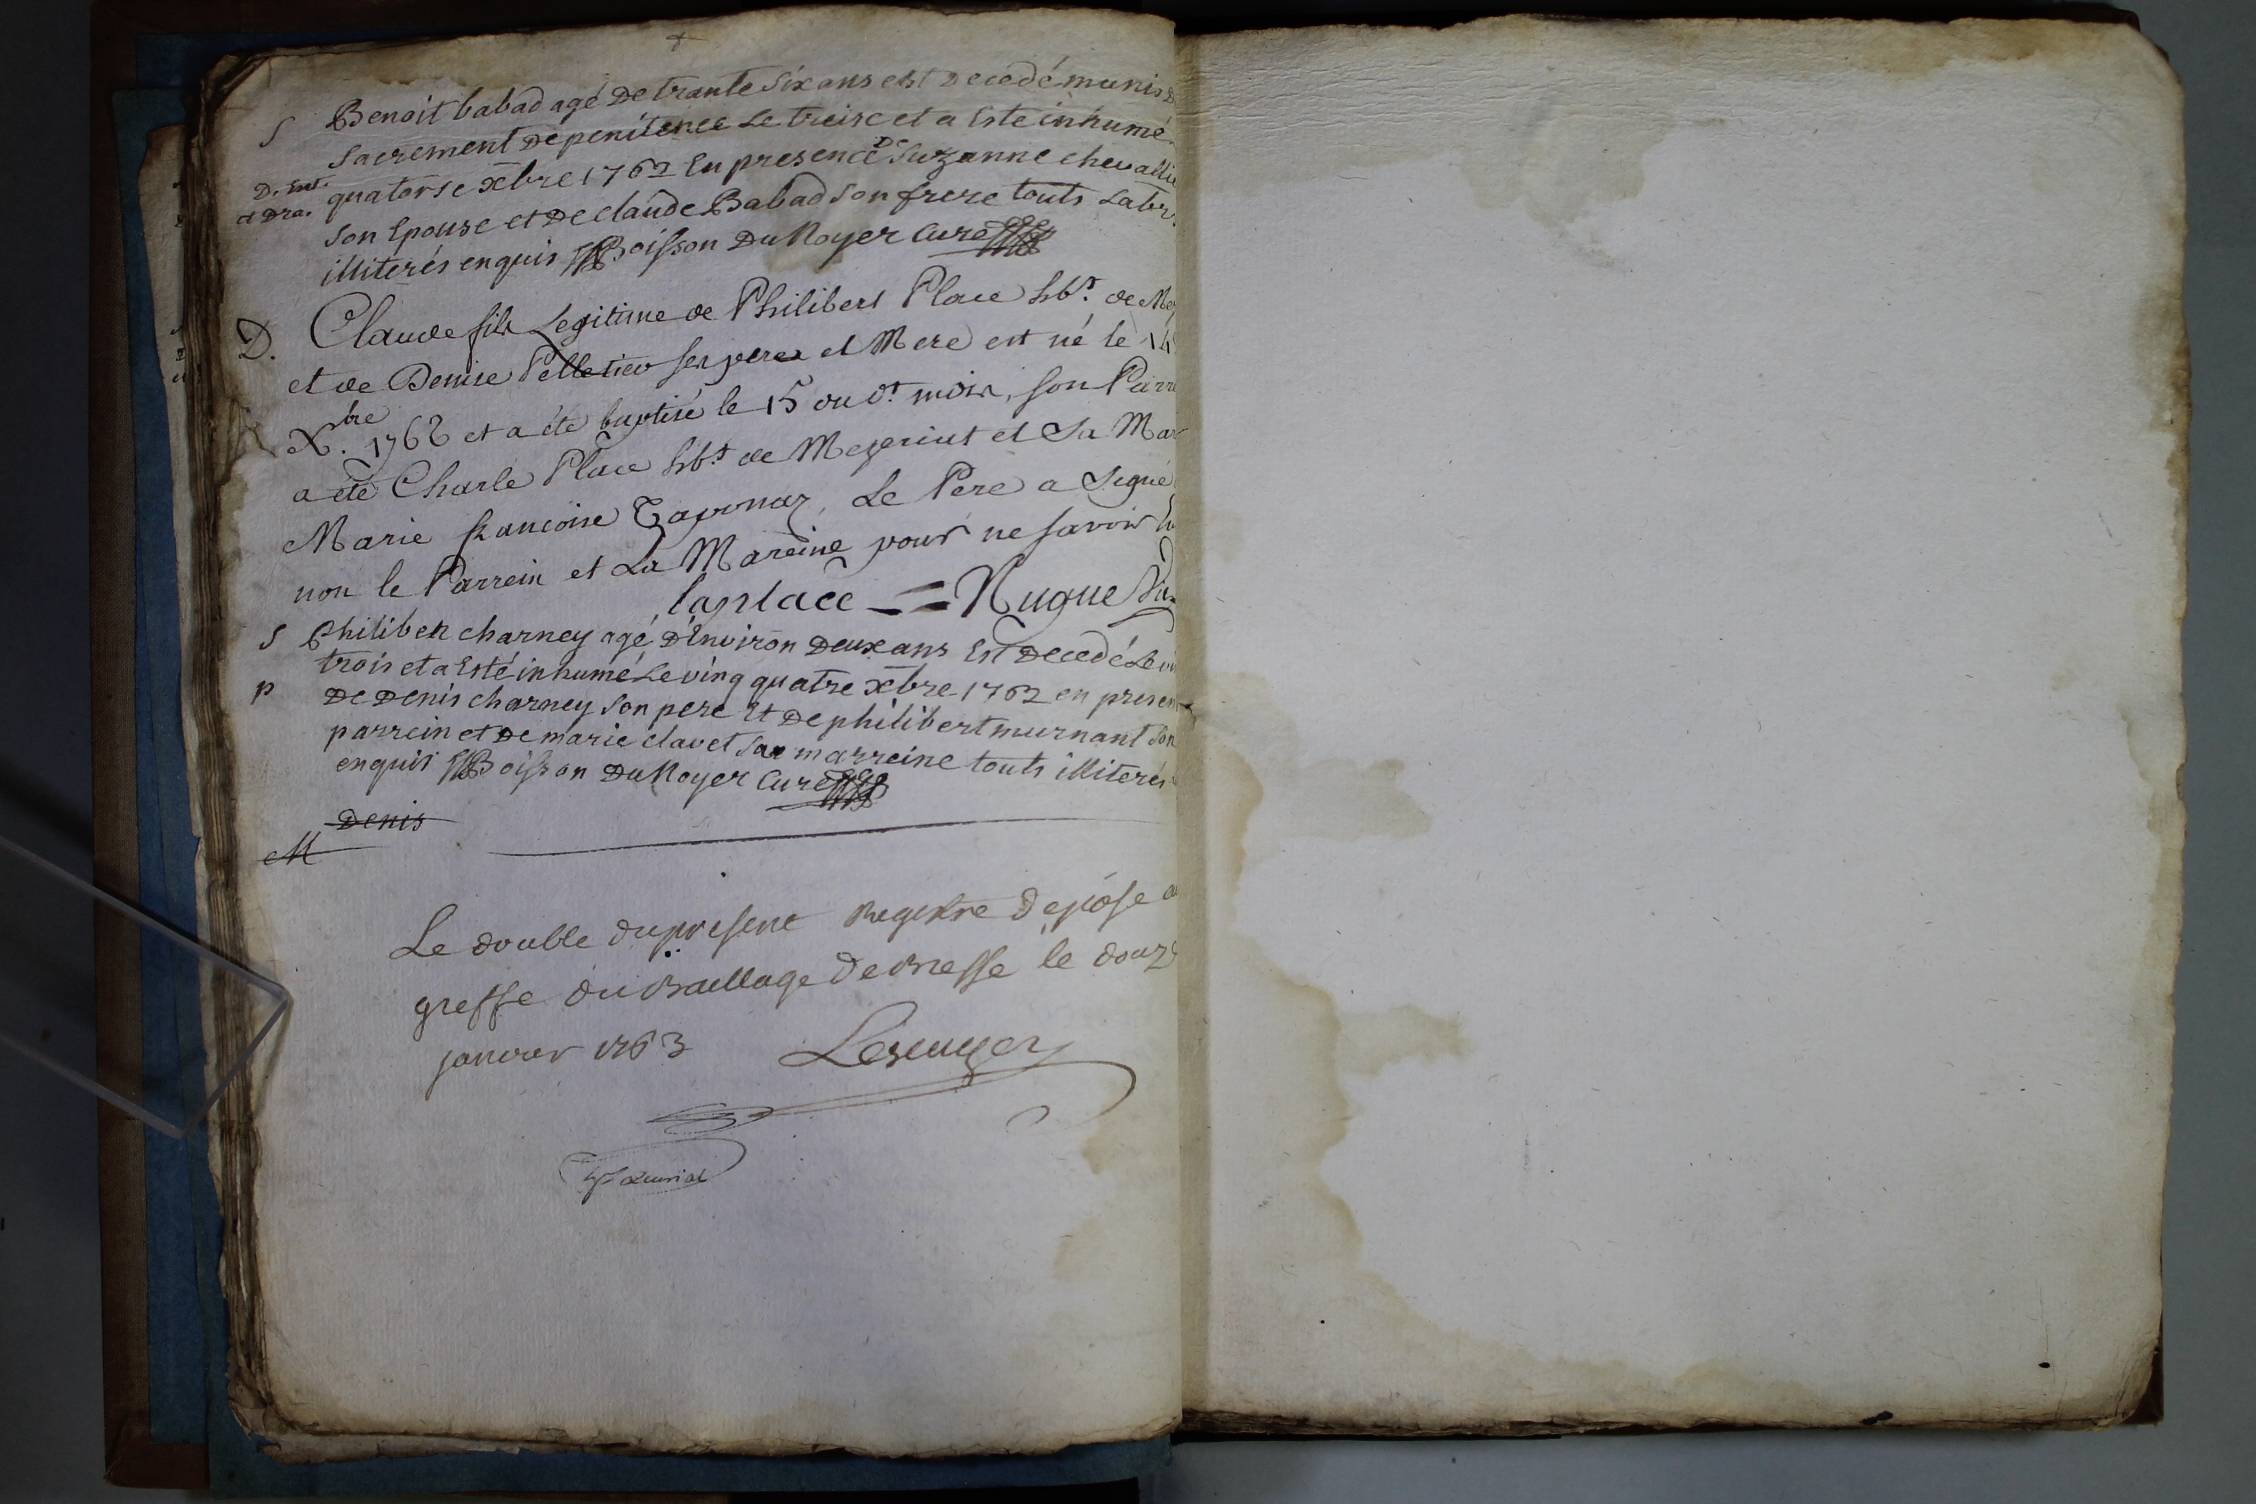 S Benoit babad agé De trante Six ans est Decedé munis D
Sacrement De penitence Le treise et a Esté inhumé
D. Ent. quatorse xbre 1762 En presence De Suzanne chevallie
et Dra. son Epouse et De claude Babad son frere touts Labr
illiterés enquis Boisson Du Noyer Curé
D. Claude fils Legitime de Philibert Place hbt. de Me
et de Denise Pelletier ses pere et Mere est né le 14
Xbre. 1762 et a été baptisé le 15 du dt. mois, son Parr
a été Charle Place hbt. de Mezeriat et Sa Mar
Marie francoise Taponaz, Le Pere a Signé
non le Parrein et La Mareine pour ne savoir
laplace == Nugue Vic
S Philibert charney agé D'Environ Deux ans Est Decedé Le vin
trois et a Esté inhumé Le ving quatre xbre 1762 en presen
p De Denis charney son pere Et De philibert murnant Son
parrein et De marie clavet sa marreine touts illiterés
enquis Boisson Du Noyer Curé
Denis
M
Le double du present Registre Depose a
greffe du Baillage De Bresse le douz
janvier 1763